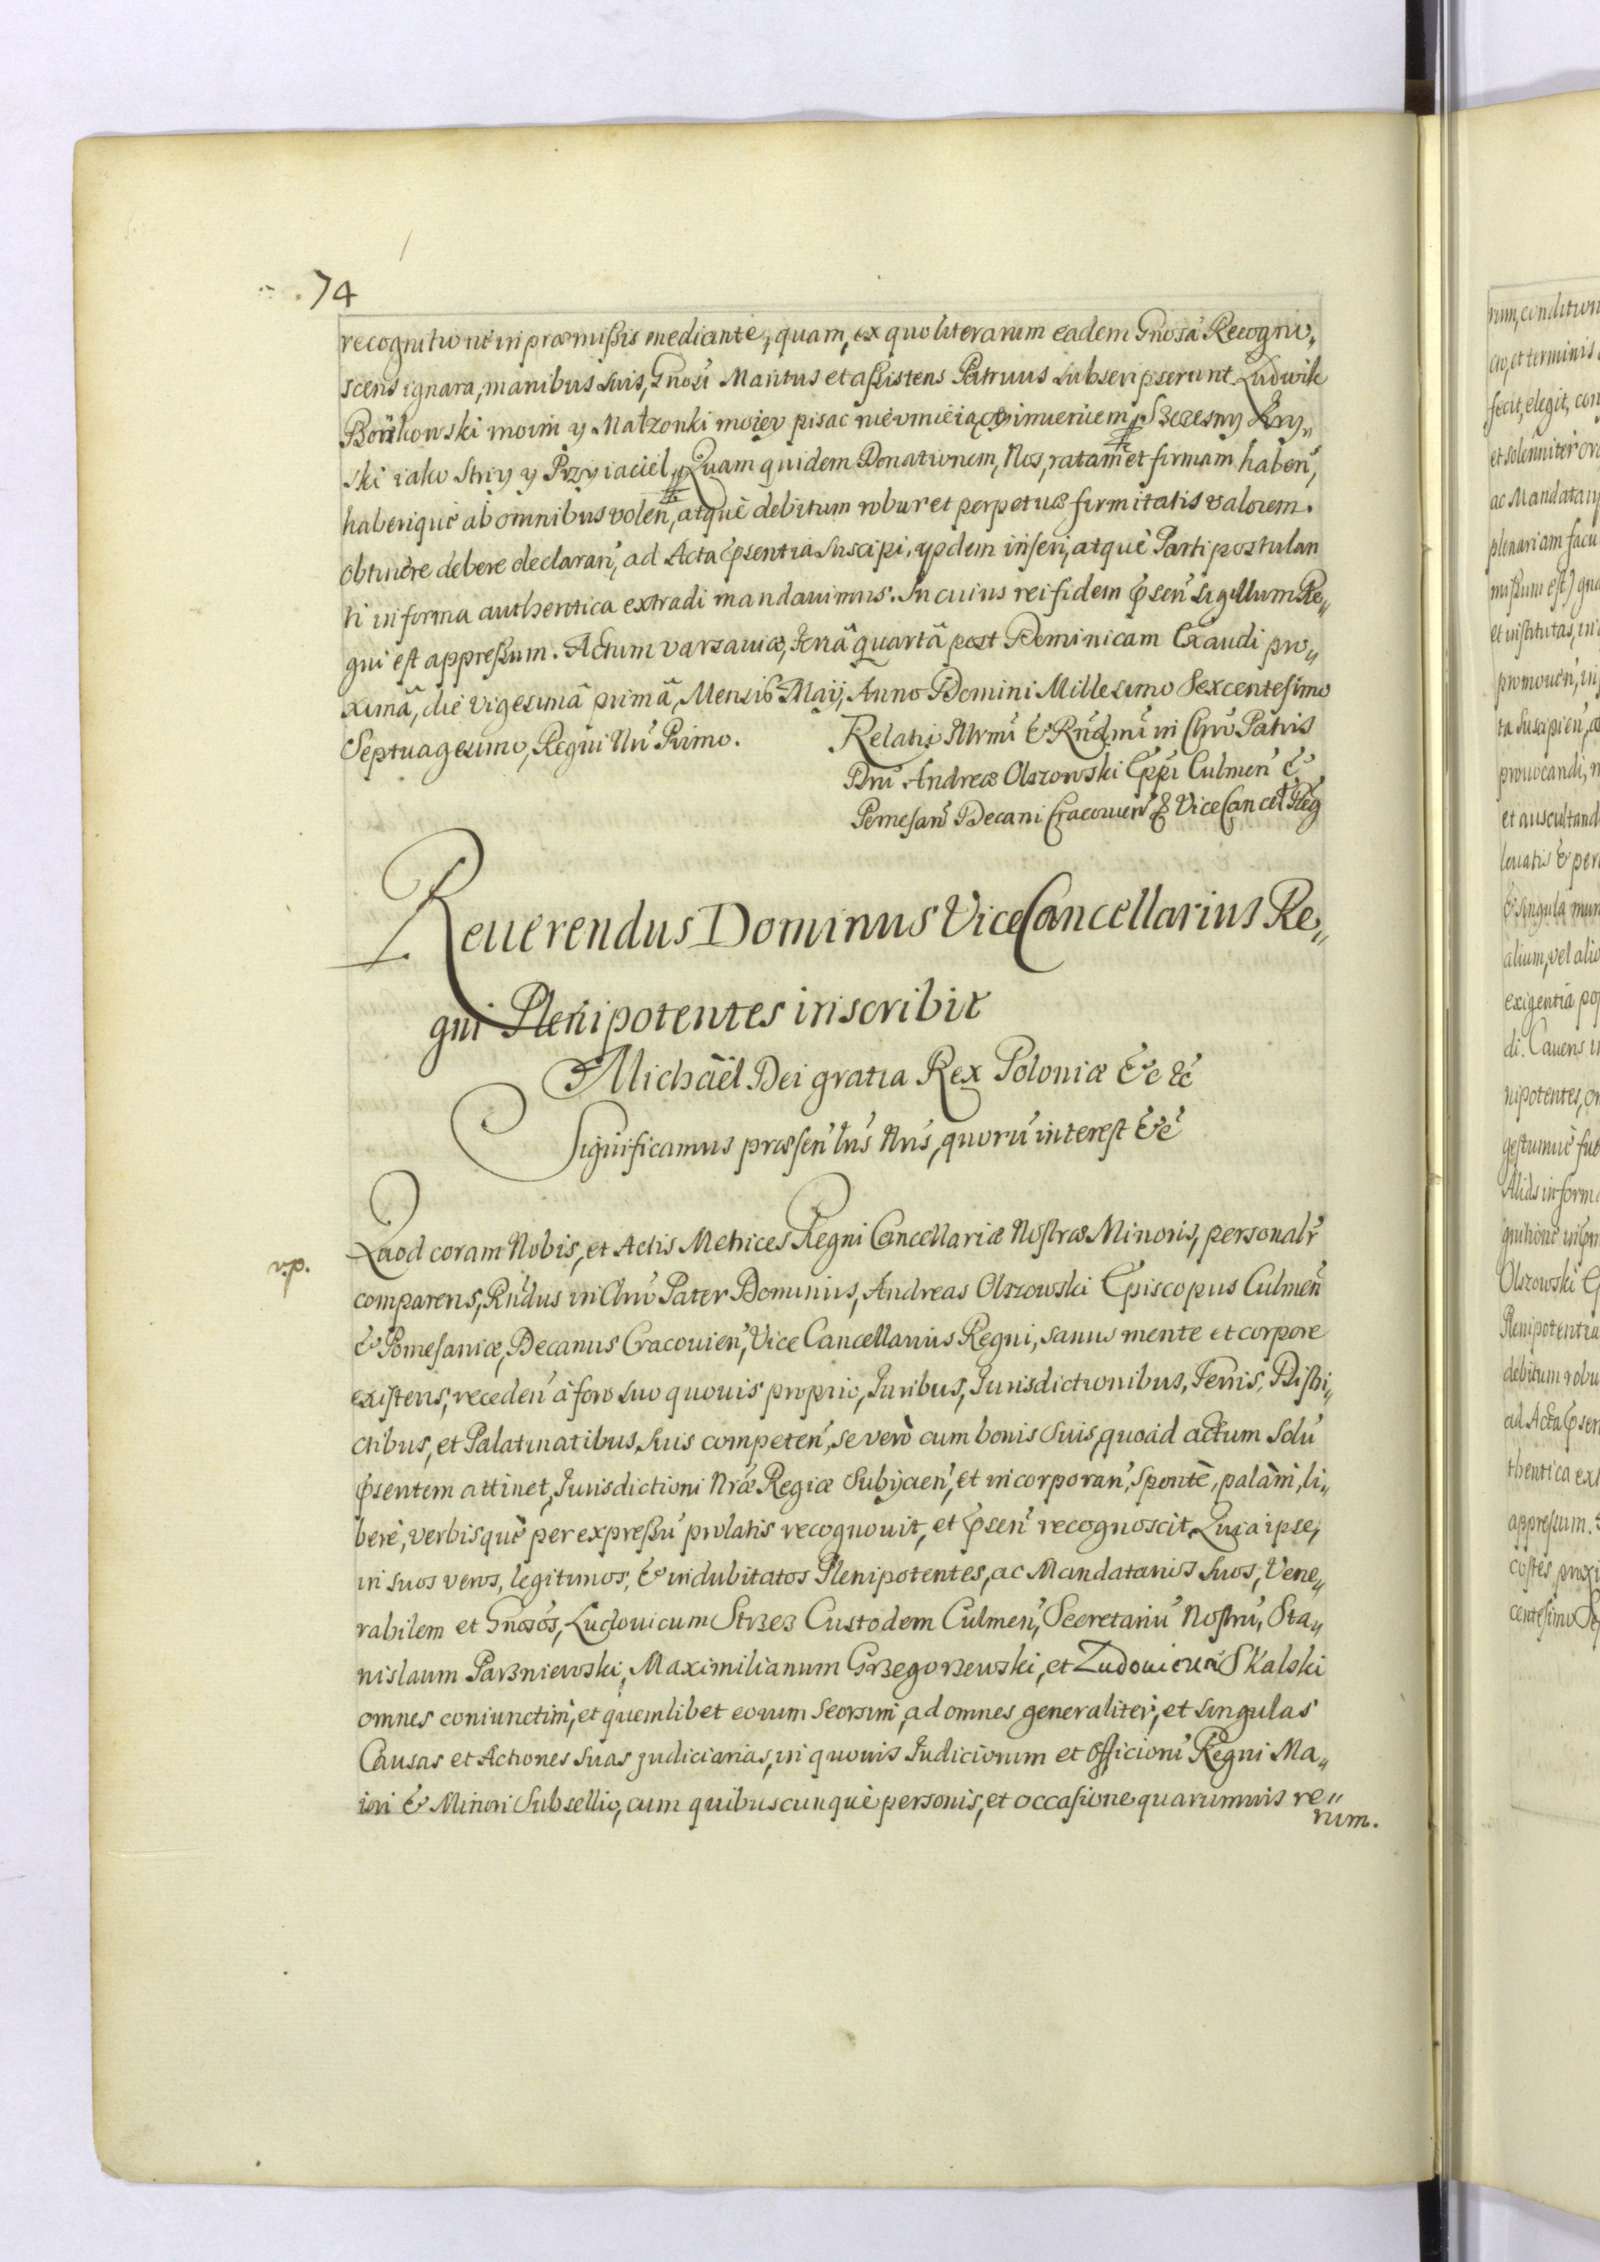 74
recognitione in præmissis mediante, quam, ex quo literarum eadem Gnosa Recogno„
scens ignara, manibus suis, Gnosi Maritus et assistens Patruus subscripserunt. Ludwik
Borzkowski imoim y Małzonki moiey pisac nie umieiacey imieniem. Szczesny
ski iako Striy y Przyiaciel. Quam quidem Donationem, Nos, ratam et firmam haben,
haberique ab omnibus volen, atque debitum robur et perpetuæ firmitatis valorem.
obtinere debere declaran, ad Acta psentia suscipi, ijsdem inseri, atque Parti postulan
ti in forma authentica extradi mandauimus. In cuius rei fidem psen sigillum Re„
gni est appressum. Actum varsauiæ, feriâ quartâ post Dominicam Exaudi pro„
ximâ, die vigesimâ primâ, Mensis Maij, Anno Domini Millesimo Sexcentesimo
Septuagesimo, Regni Nri Primo.
Relatio Illrmi & Rndmi in Chro Patris
Dni Andreæ Olszowski Eppi Culmen &
Pomesan Decani Cracouien & ViceCancel Reg
Reuerendus Dominus ViceCancellarius Re„
gni Plenipotentes inscribit
Michaël Dei gratia Rex Poloniæ &c &c
Significamus præsen lris Nris, quorũ interest &c
v.p.
Quod coram Nobis, et Actis Metrices Regni Cancellariæ Nostræ Minoris, personalr
comparens, Rndus in Chro Pater Dominus, Andreas Olszowski Episcopus Culmen
& Pomesaniæ, Decanus Cracouien, Vice Cancellarius Regni, sanus mente et corpore
existens, receden à foro suo quouis proprio, Iuribus, Iurisdictionibus, Terris, Distri„
ctibus, et Palatinatibus, suis competen, se verò cum bonis suis, quoad actum solũ
psentem attinet, Iurisdictioni Nræ Regiæ Subijcien, et incorporan, Sponte, palàm, li„
bere, verbisque per expressũ prolatis recognouit, et psen recognoscit. Quia ipse,
in suos veros, legitimos, & indubitatos Plenipotentes, ac Mandatarios suos, Vene„
rabilem et Gnosos, Ludouicum Strzesz Custodem Culmen, Secretariũ Nostrũ, Sta„
nislaum Parzniewski, Maximilianum Grzegorzewski, et Ludouicum Skalski
omnes coniunctim, et quemlibet eorum seorsim, ad omnes generaliter, et singulas
Causas et Actiones suas judiciarias, in quouis Iudiciorum et Officiorũ Regni Ma„
iori & Minori Subsellio, cum quibuscunque personis, et occasione quarumuis re„
rum.